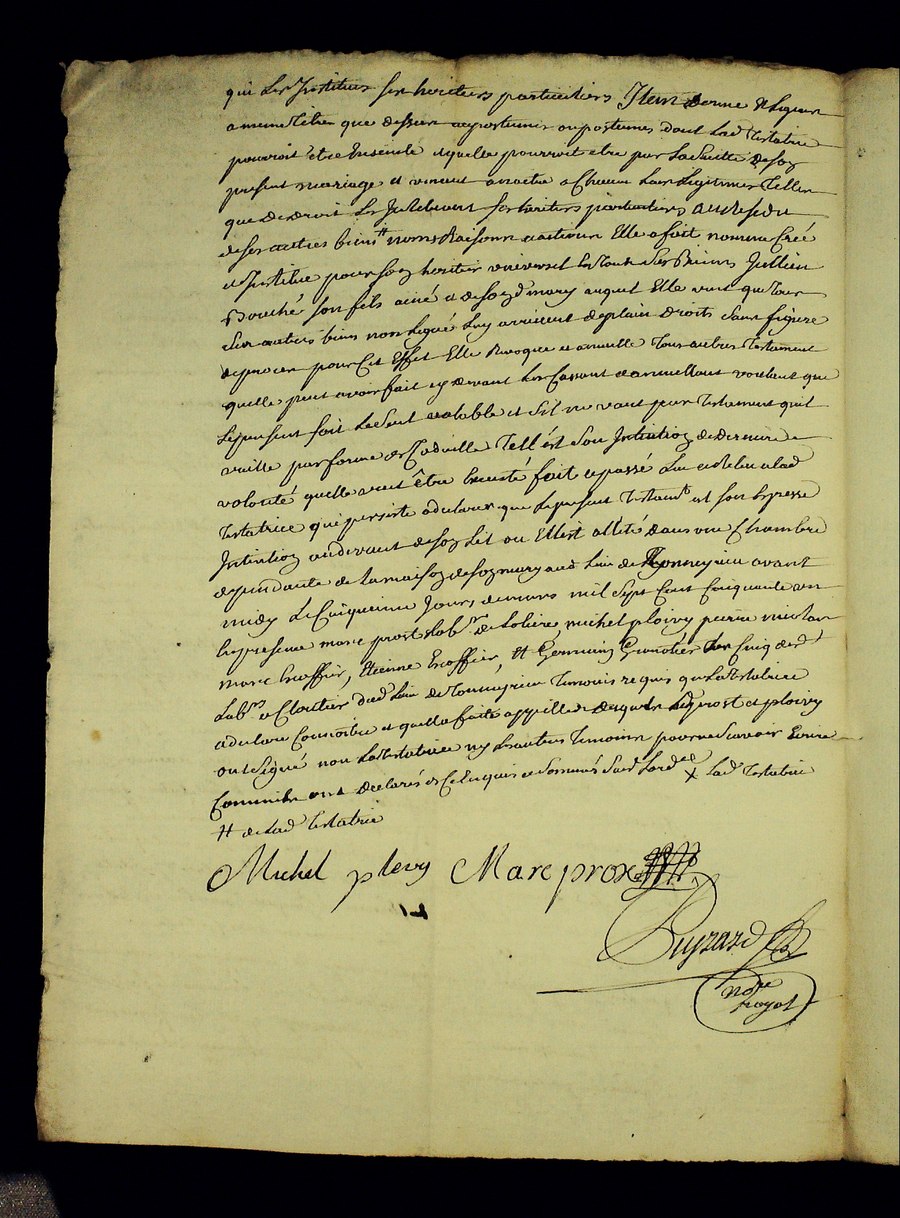 qui les Institue ses heritiers particuliers Item donne et legue
a meme titre que dessus au postume ou postumes dont lad. Testatrice
pourroit être Enseinte et quelle pourroit etre par la suitte de son
present mariage et venant a naitre a chacun leur legitimes telles
que de droit les Instituant ses heritiers particuliers au residu
de ses autres biens noms Raisons actions Elle a fait nommé Créé
et Institue pour son heritier universel en tous ses Biens Jullien
Bouché son fils ainé et de son d. mary auquel Elle veut que tous
ses autres biens non legué luy arrivent de plain droits sans figure
de proces pour cet Effet Elle Revoque et annulle tous autres Testament
quelle peut avoir fait cy devant les Cassant et annullant voulant que
le present soit le seul valable et s'il ne vaut par Testament quil
vaille par forme de Codicille Tell ést son Intention de derniere
volonté quelle veut être Executé fait et passé lu et relu a lad
Testatrice qui persiste a declarer que le present Testamt est son Expresse
Intention au devant de son Lit ou Ellest allité dans une Chambre
dependante de la maison de son mary aud. lieu de avant
midy le Cinquieme Jours de mars mil sept Cent Cinquante un
En presence marc prost lab.r de michel ploivy pierre nicolas
marc Escoffier, Etienne Escoffier, et Germain tous Cinq de
lab.rs et Cloutier dud. lieu de Temoins requis qui lad. Testatrice
a declare Connoitre et quelle a faits appeller desquels led. prost et ploivy
ont signé non la Testatrice ny les autres Temoins pour ne Scavoir Ecrire
Comme ils ont declarés de Ce Enquis et sommés x lad. Testatrice
# de lad Testatrice
Michel plevy Marc prox
Puyzard
no.re
royal